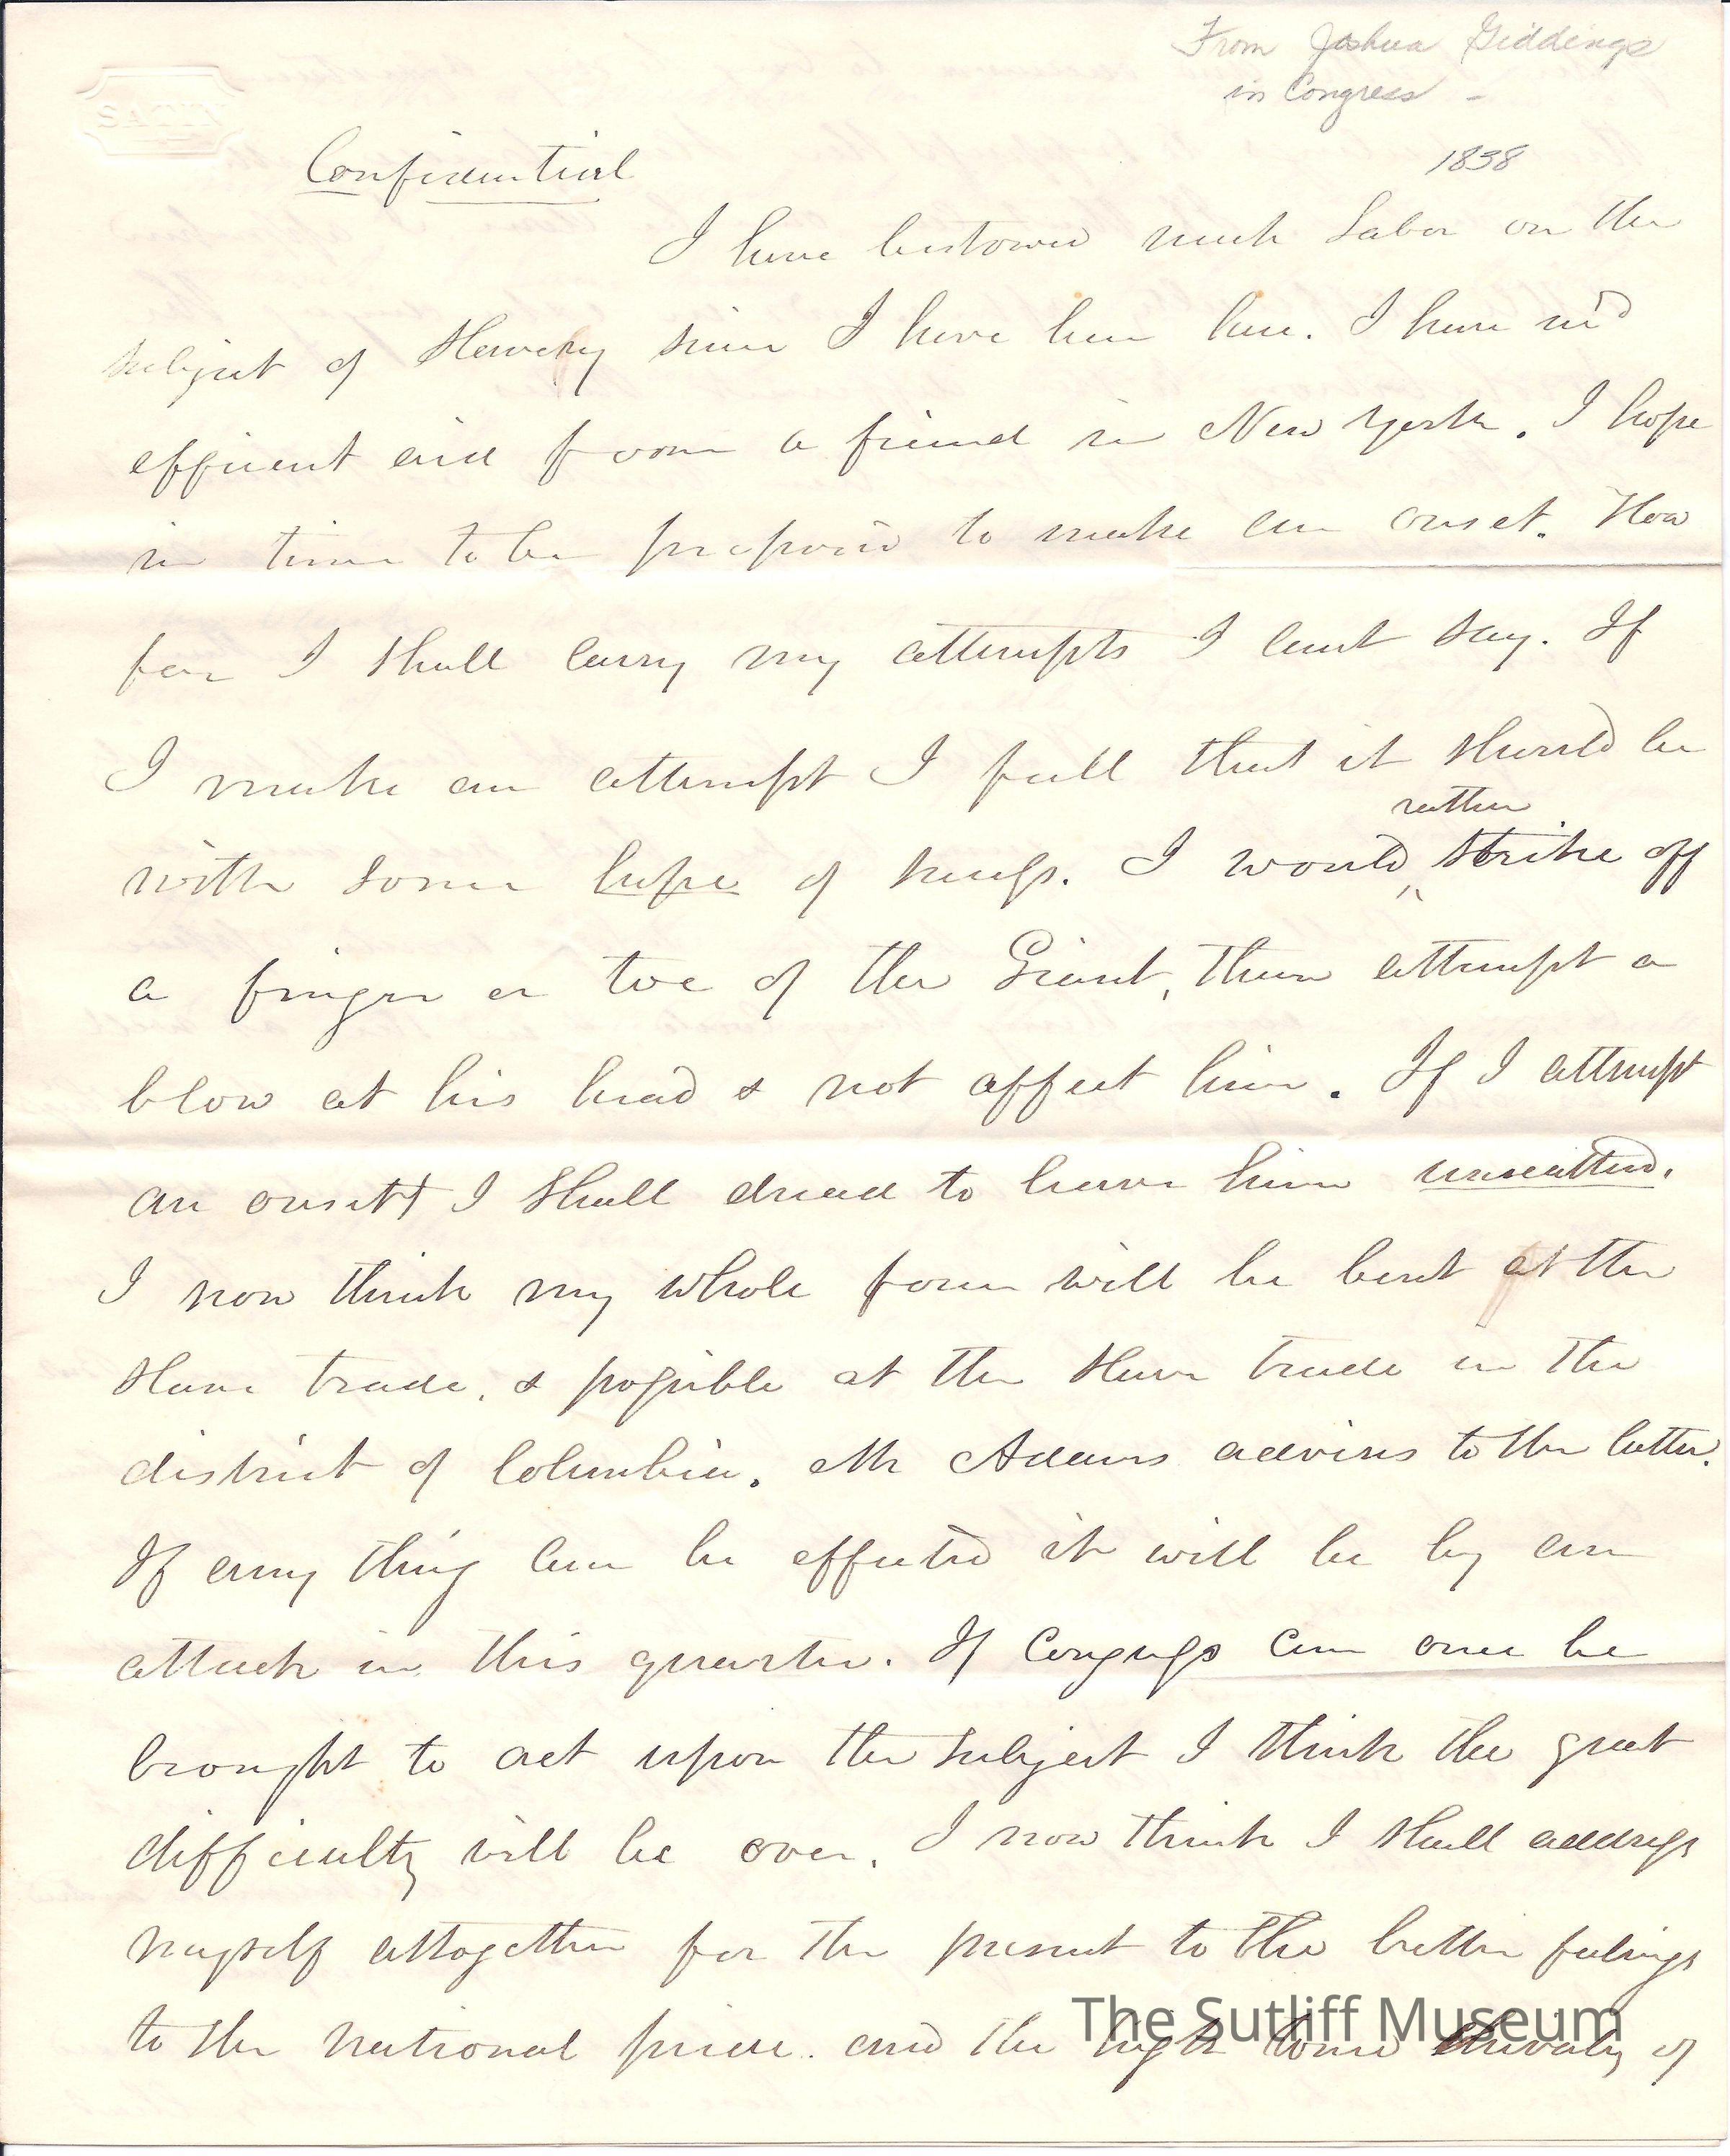 From Joshua Giddings
in Congress -
1838
Confidential
I have bestowed much labor on the
subject of Slavery since I have been here. I have rec'd
efficient aid from a friend in New York. I hope
in time to be prepared to make an onset. How
far I shall carry my attempts I cant say. If
I make an attempt I feel that it should be
with some hope of success. I would rather strike off
a finger or toe of the Giant, than attempt a
blow at his head & not affect him. If I attempt
an onset I shall dread to leave him unscathed.
I now think my whole force will be bent at the
Slave trade, & possible at the Slave trade in the
district of Columbia. Mr Adams advises to the latter.
If any thing can be effected it will be by an
attack in this quarter. If Congress can once be
brought to act upon the subject I think the great
difficulty will be over. I now think I shall address
myself altogether for the present to the better feelings
to the national pride and the high toned chivalry of
The Sutliff Museum